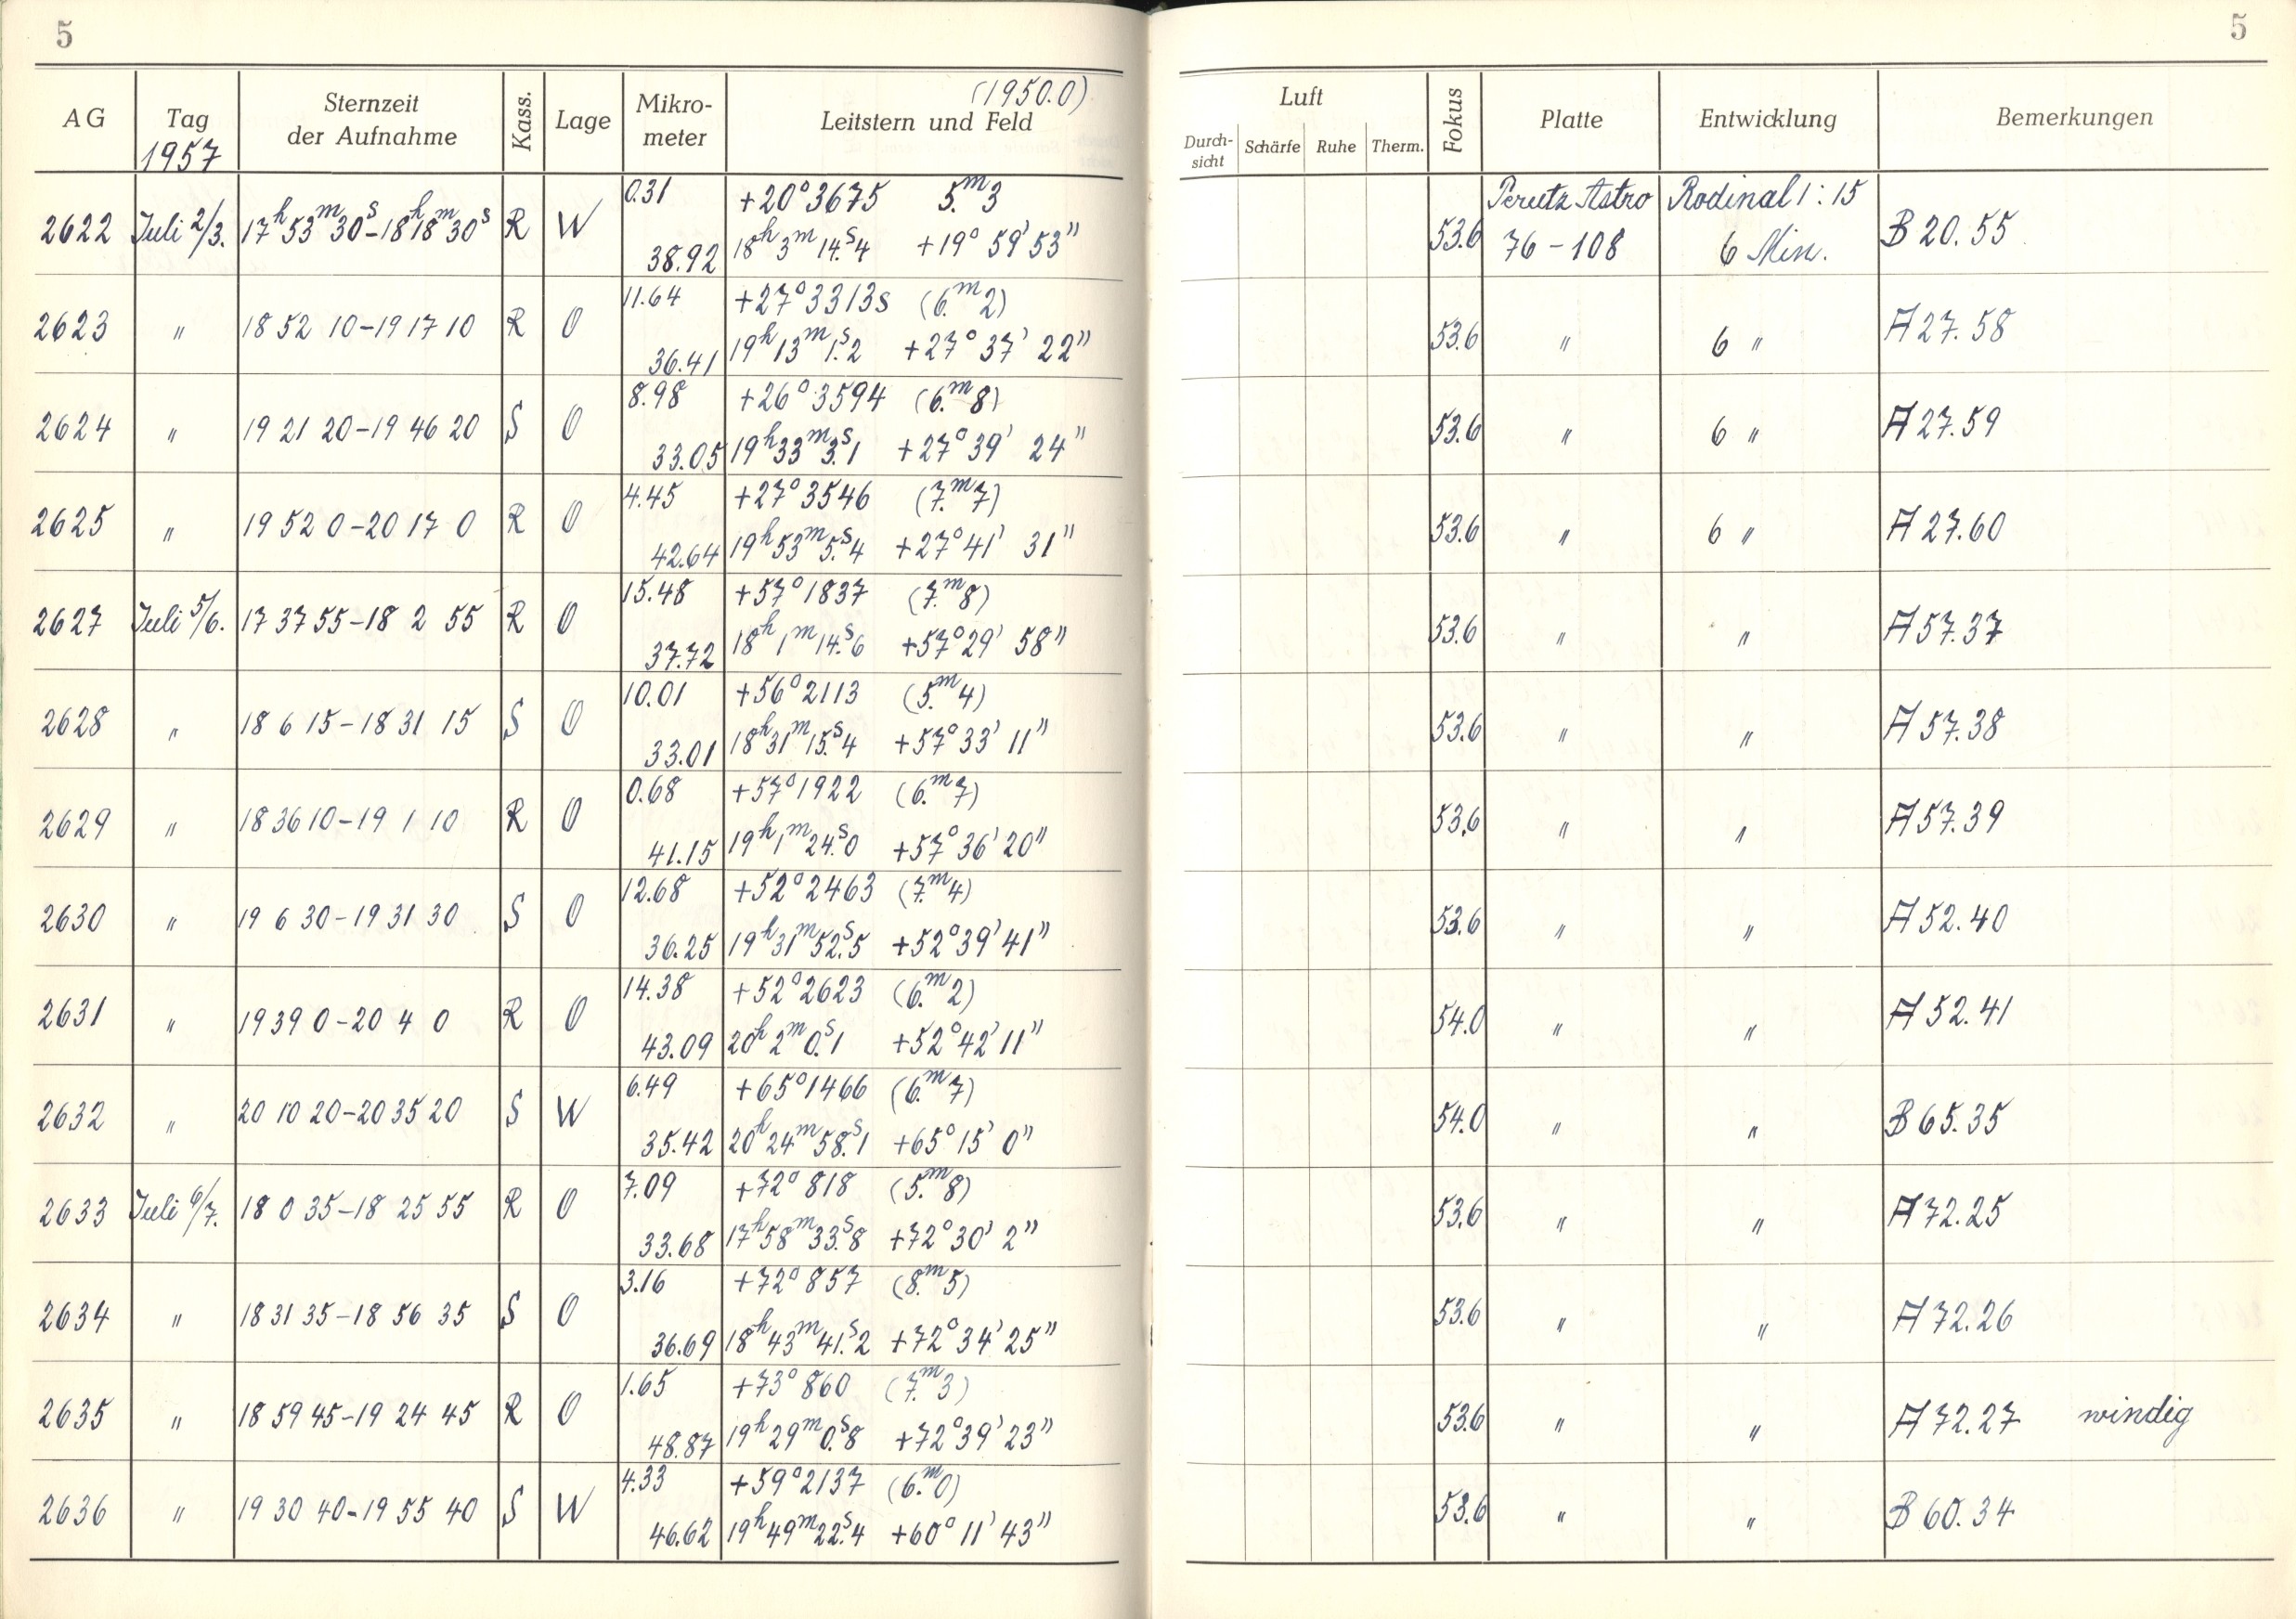 5
5
(1950.0)
AG Tag Sternzeit der Aufnahme Kass. Lage Mikro-meter Leitstern und Feld
1957
Luft
Durch-sicht Schärfe Ruhe Therm. Fokus Platte Entwicklung Bemerkungen
0.31 +20° 3675 5.m3 Perutz Astro Rodinal 1:15
2622 Juli 2/3. 17h 53m 30s–18h 18m 30s R W 53.6 B 20.55
38.92 18h 3m 14.s4 +19° 59' 53" 76–108 6 Min.
11.64 +27° 3313s (6.m2)
2623 " 18 52 10–19 17 10 R O 53.6 " 6 " A 27.58
36.41 19h 13m 1.s2 +27° 37' 22"
8.98 +26° 3594 (6.m8)
2624 " 19 21 20–19 46 20 S O 53.6 " 6 " A 27.59
33.05 19h 33m 3.s1 +27° 39' 24"
4.45 +27° 3546 (7.m7)
2625 " 19 52 0–20 17 0 R O 53.6 " 6 " A 27.60
42.64 19h 53m 5.s4 +27° 41' 31"
15.48 +57° 1837 (7.m8)
2627 Juli 5/6. 17 37 55–18 2 55 R O 53.6 " " A 57.37
37.72 18h 1m 14.s6 +57° 29' 58"
10.01 +56° 2113 (5.m4)
2628 " 18 6 15–18 31 15 S O 53.6 " " A 57.38
33.01 18h 31m 15.s4 +57° 33' 11"
0.68 +57° 1922 (6.m7)
2629 " 18 36 10–19 1 10 R O 53.6 " " A 57.39
41.15 19h 1m 24.s0 +57° 36' 20"
12.68 +52° 2463 (7.m4)
2630 " 19 6 30–19 31 30 S O 53.6 " " A 52.40
36.25 19h 31m 52.s5 +52° 39' 41"
14.38 +52° 2623 (6.m2)
2631 " 19 39 0–20 4 0 R O 54.0 " " A 52.41
43.09 20h 2m 0.s1 +52° 42' 11"
6.49 +65° 1466 (6.m7)
2632 " 20 10 20–20 35 20 S W 54.0 " " B 65.35
35.42 20h 24m 58.s1 +65° 15' 0"
7.09 +72° 818 (5.m8)
2633 Juli 6/7. 18 0 35–18 25 55 R O 53.6 " " A 72.25
33.68 17h 58m 33.s8 +72° 30' 2"
3.16 +72° 857 (8.m5)
2634 " 18 31 35–18 56 35 S O 53.6 " " A 72.26
36.69 18h 43m 41.s2 +72° 34' 25"
1.65 +73° 860 (7.m3)
2635 " 18 59 45–19 24 45 R O 53.6 " " A 72.27 windig
48.87 19h 29m 0.s8 +72° 39' 23"
4.33 +59° 2137 (6.m0)
2636 " 19 30 40–19 55 40 S W 53.6 " " B 60.34
46.62 19h 49m 22.s4 +60° 11' 43"